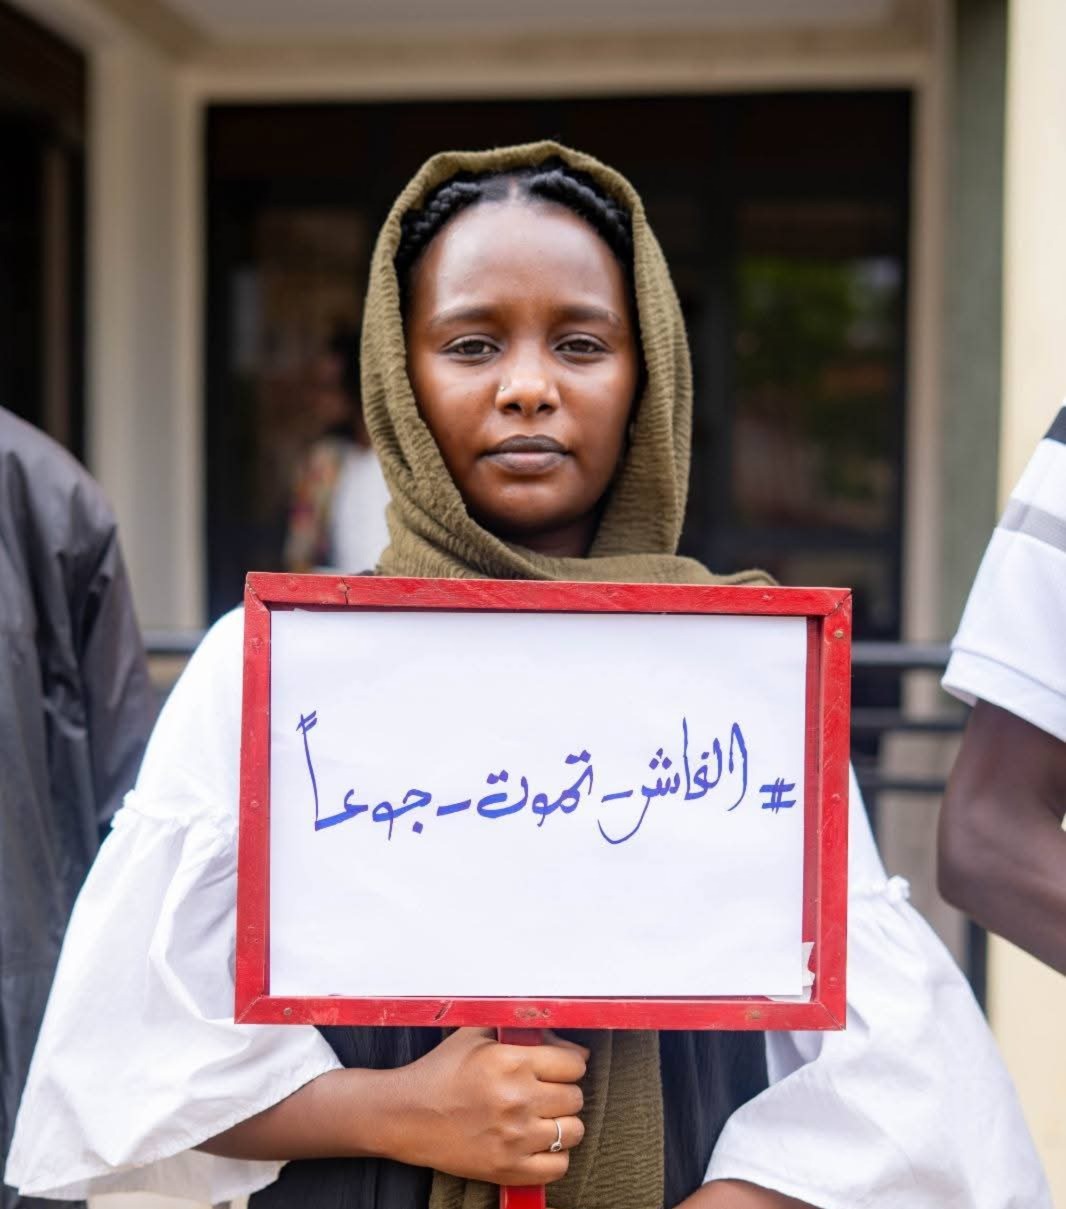 #الفاشر-تموت-جوعاً